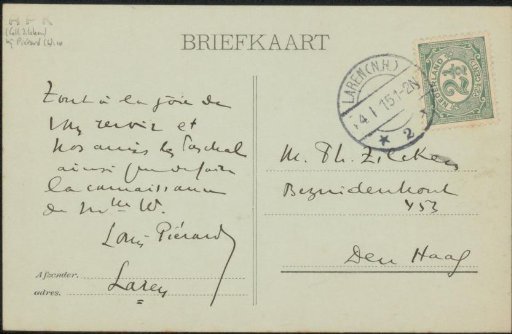 (Coll. Zilcken)
BRIEFKAART
NEDERLAND
2½
LAREN (N.H.)
4.1.15.1-2N
2
Tout à la joie de
vous revoir et
nos amis les Paschal
ainsi que de faire
la connaissance
de Mlle W.
Louis Piérard
Afzender.
adres.
Laren
M. Ph. Zilcken
Bezuidenhout
453
Den Haag